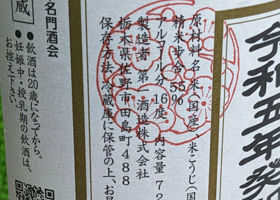 令和五年発
原材料名 米(国産)、米こうじ(国
精米歩合 55%
アルコール分 16度 内容量 72
製造者 第一酒造株式会社
栃木県佐野市田島町488
保存方法 冷蔵庫に保管の上、お早
名門酒会
蔵
・飲酒は20歳になってから。
・妊娠中・授乳期の飲酒は、
お控え下さい。